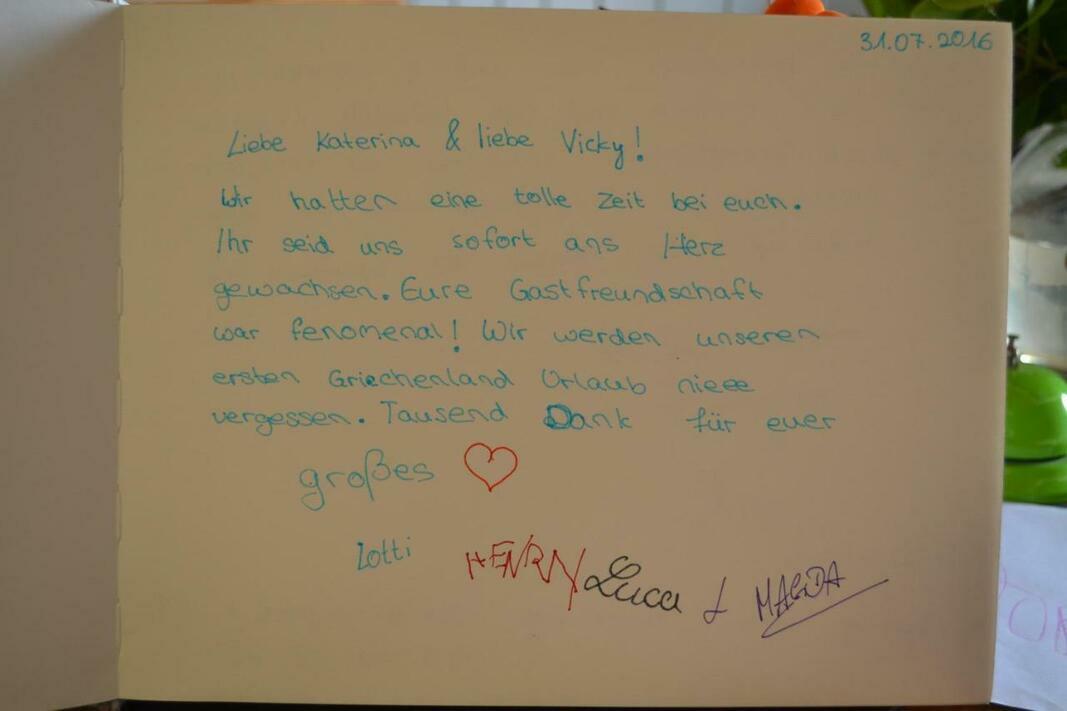 31.07.2016
Liebe Katerina & liebe Vicky!
Wir hatten eine tolle Zeit bei euch.
Ihr seid uns sofort ans Herz
gewachsen. Eure Gastfreundschaft
war fenomenal! Wir werden unseren
ersten Griechenland Urlaub nieee
vergessen. Tausend Dank für euer
großes ♡
Lotti HENRY Luca & MAGDA